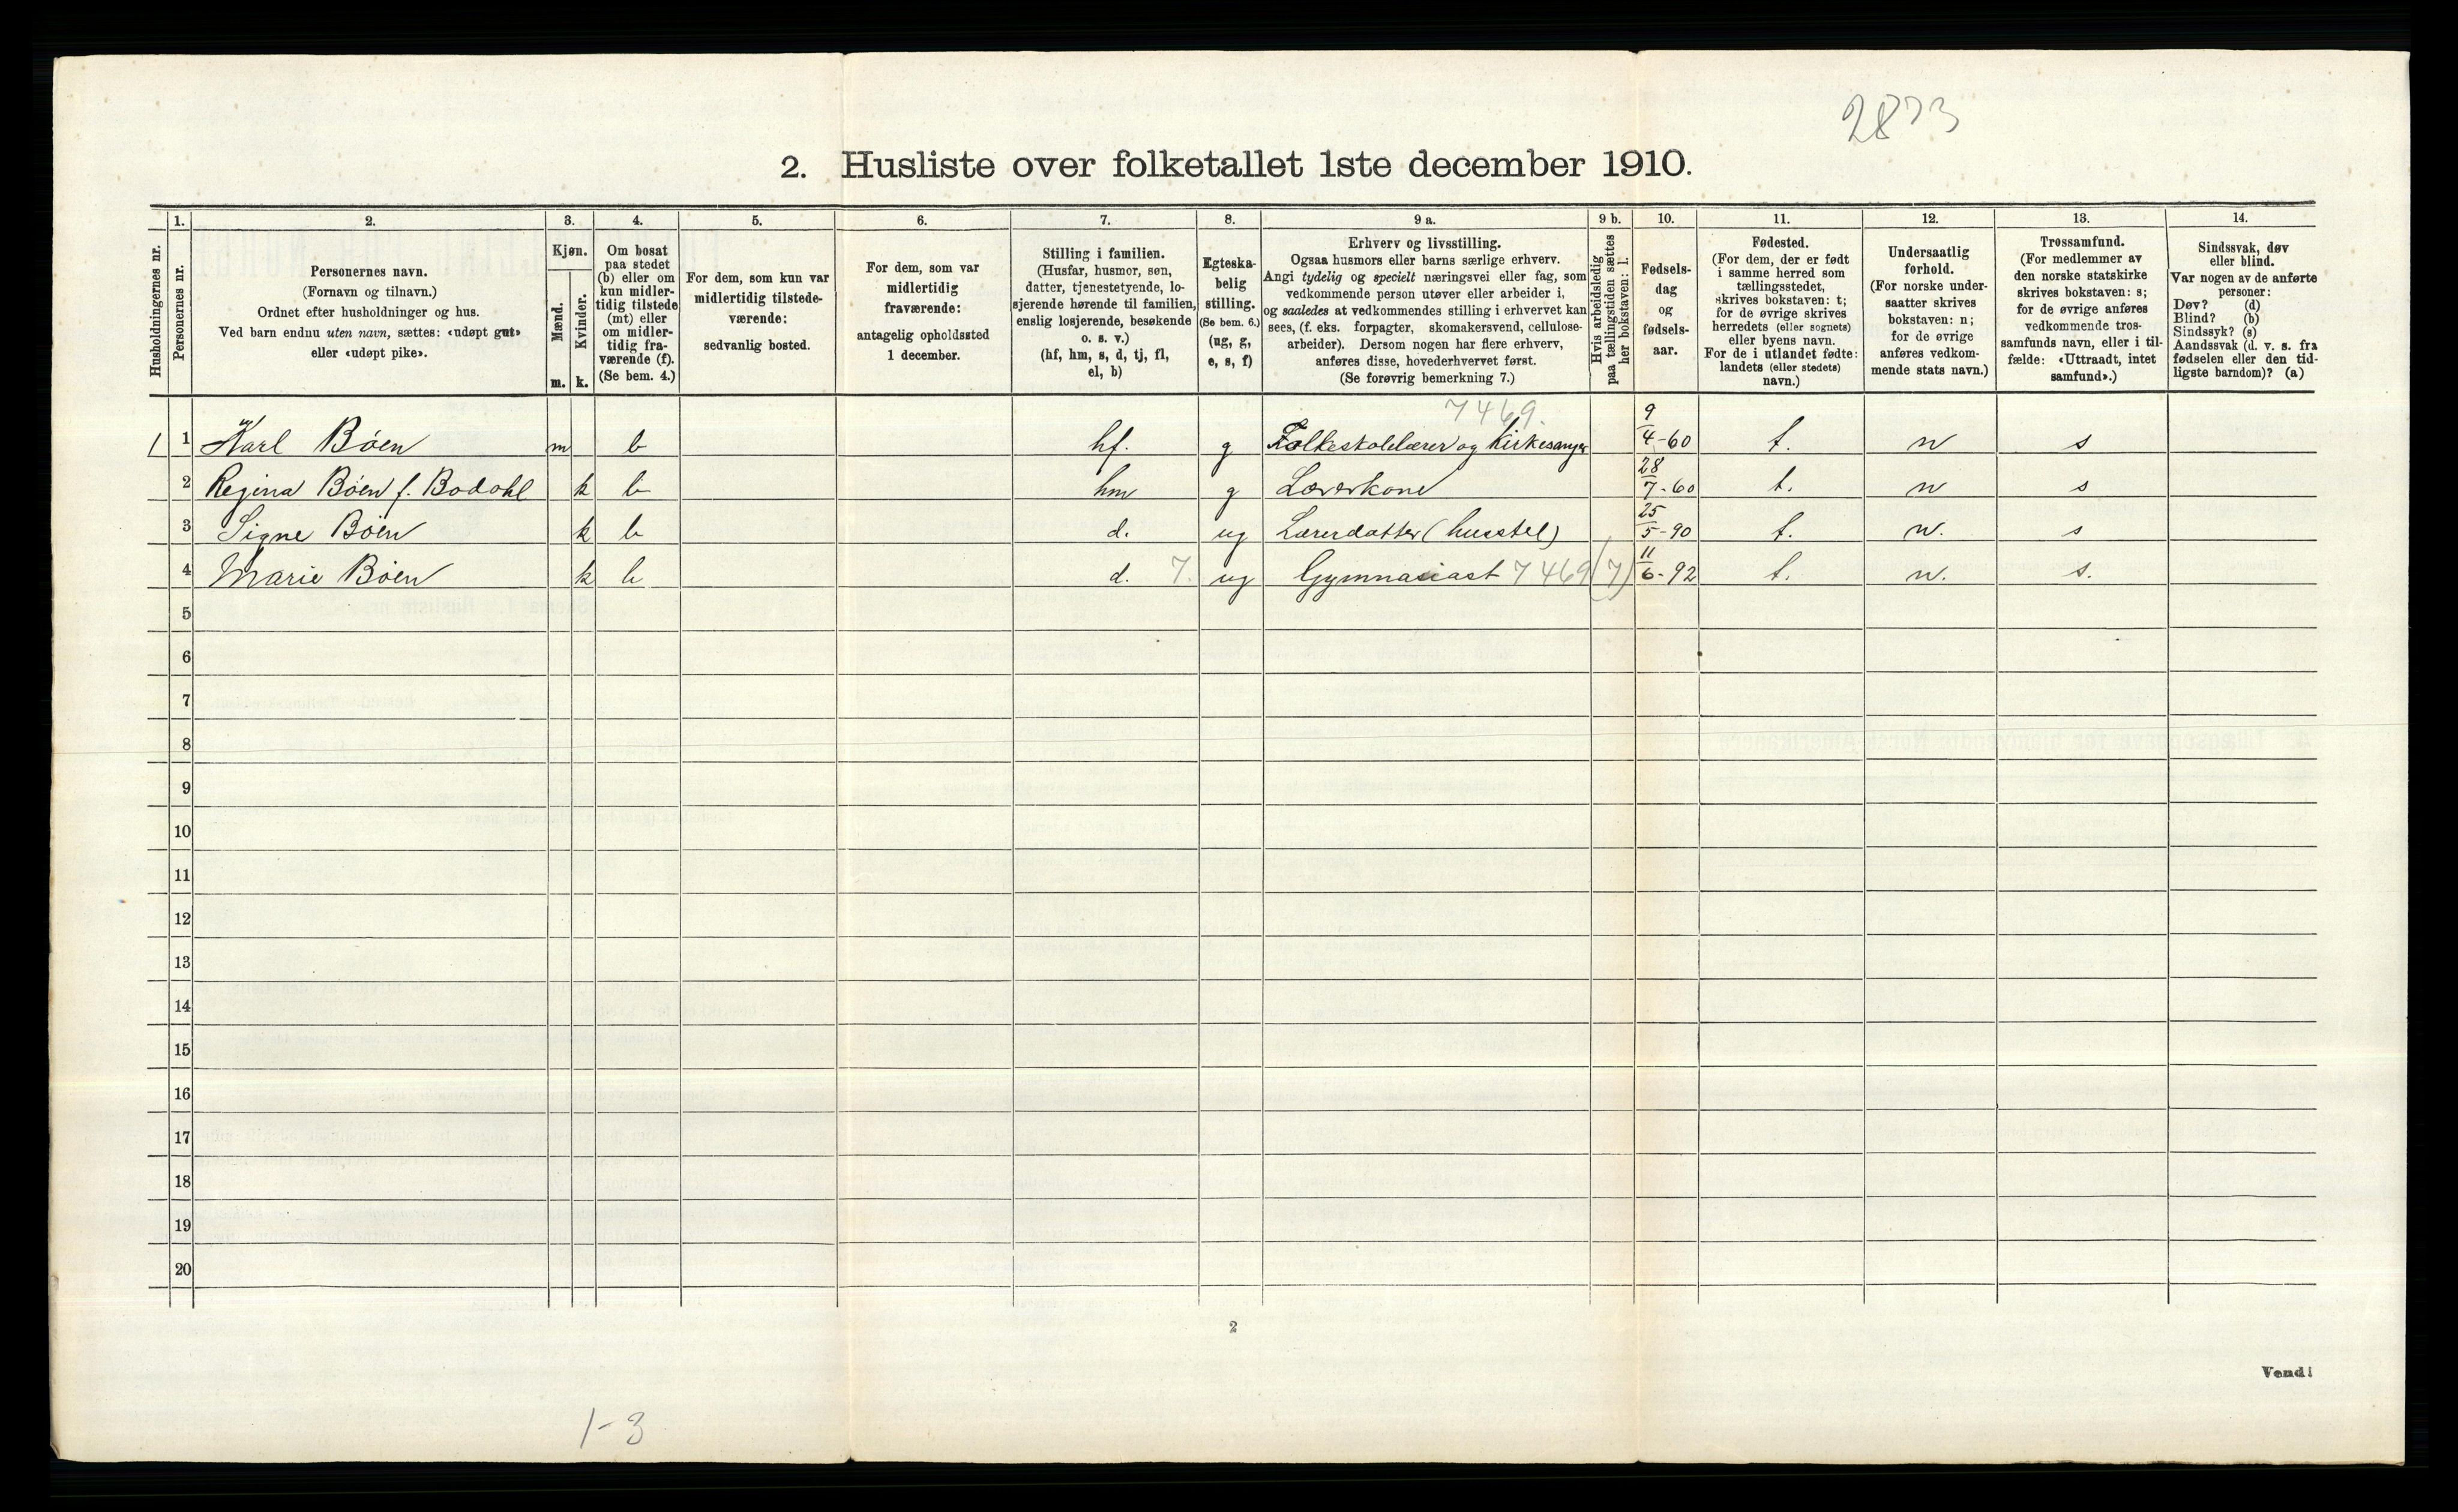 2873
2. Husliste over folketallet 1ste december 1910.
Husholdningernes nr.
1.
Personernes nr.
2.
Personernes navn.
(Fornavn og tilnavn.)
Ordnet efter husholdninger og hus.
Ved barn endnu uten navn, sættes: «udøpt gut»
eller «udøpt pike».
3.
Kjøn.
Mænd.
Kvinder.
m. k.
4.
Om bosat
paa stedet
(b) eller om
kun midler-
tidig tilstede
(mt) eller
om midler-
tidig fra-
værende (f).
(Se bem. 4.)
5.
For dem, som kun var
midlertidig tilstede-
værende:
sedvanlig bosted.
6.
For dem, som var
midlertidig
fraværende:
antagelig opholdssted
1 december.
7.
Stilling i familien.
(Husfar, husmor, søn,
datter, tjenestetyende, lo-
sjerende hørende til familien,
enslig losjerende, besøkende
o. s. v.)
(hf, hm, s, d, tj, fl,
el, b)
8.
Egteska-
belig
stilling.
(Se bem. 6.)
(ug, g,
e, s, f)
9 a.
Erhverv og livsstilling.
Ogsaa husmors eller barns særlige erhverv.
Angi tydelig og specielt næringsvei eller fag, som
vedkommende person utøver eller arbeider i,
og saaledes at vedkommendes stilling i erhvervet kan
sees, (f. eks. forpagter, skomakersvend, cellulose-
arbeider). Dersom nogen har flere erhverv,
anføres disse, hovederhvervet først.
(Se forøvrig bemerkning 7.)
9 b.
Hvis arbeidsledig
paa tællingstiden sættes
her bokstaven: l.
10.
Fødsels-
dag
og
fødsels-
aar.
11.
Fødested.
(For dem, der er født
i samme herred som
tællingsstedet,
skrives bokstaven: t;
for de øvrige skrives
herredets (eller sognets)
eller byens navn.
For de i utlandet fødte:
landets (eller stedets)
navn.)
12.
Undersaatlig
forhold.
(For norske under-
saatter skrives
bokstaven: n;
for de øvrige
anføres vedkom-
mende stats navn.)
13.
Trossamfund.
(For medlemmer av
den norske statskirke
skrives bokstaven: s;
for de øvrige anføres
vedkommende tros-
samfunds navn, eller i til-
fælde: «Uttraadt, intet
samfund».)
14.
Sindssvak, døv
eller blind.
Var nogen av de anførte
personer:
Døv? (d)
Blind? (b)
Sindssyk? (s)
Aandssvak (d. v. s. fra
fødselen eller den tid-
ligste barndom)? (a)
7469.
1 1 Karl Böen m b hf. g Folkeskolelærer og Kirkesanger 9/4-60 t. n s
2 Regina Böen f. Bodahl k b hm g Lærerkone 28/7-60 t. n s
3 Signe Böen k b d. ug Lærerdatter (husstel) 25/5-90 t. n. s
4 Marie Böen k b d. 7. ug Gymnasiast 7469 (7) 11/6-92 t. n. s.
5
6
7
8
9
10
11
12
13
14
15
16
17
18
19
20
2
Vend!
1-3